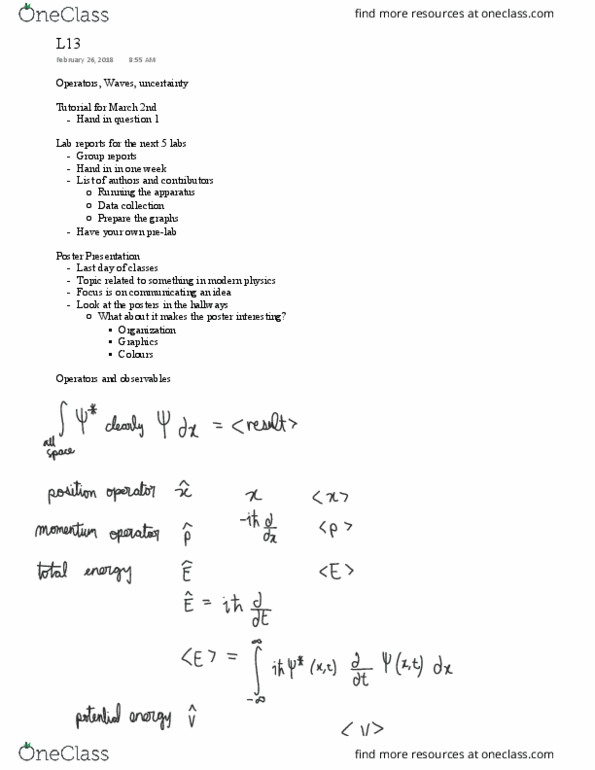 OneClass find more resources at oneclass.com
L13
February 26, 2018 8:55 AM
Operators, Waves, uncertainty
Tutorial for March 2nd
- Hand in question 1
Lab reports for the next 5 labs
- Group reports
- Hand in in one week
- List of authors and contributors
o Running the apparatus
o Data collection
o Prepare the graphs
- Have your own pre-lab
Poster Presentation
- Last day of classes
- Topic related to something in modern physics
- Focus is on communicating an idea
- Look at the posters in the hallways
o What about it makes the poster interesting?
▪ Organization
▪ Graphics
▪ Colours
Operators and observables
∫ Ψ* clearly Ψ dx = <result>
all space
position operator x̂ x <x>
momentum operator p̂ -iħ d/dx <p>
total energy Ê <E>
Ê = iħ d/dt
<E> = ∫_{-∞}^{∞} iħ Ψ* (x,t) ∂/∂t Ψ(x,t) dx
potential energy V̂ <V>
OneClass find more resources at oneclass.com